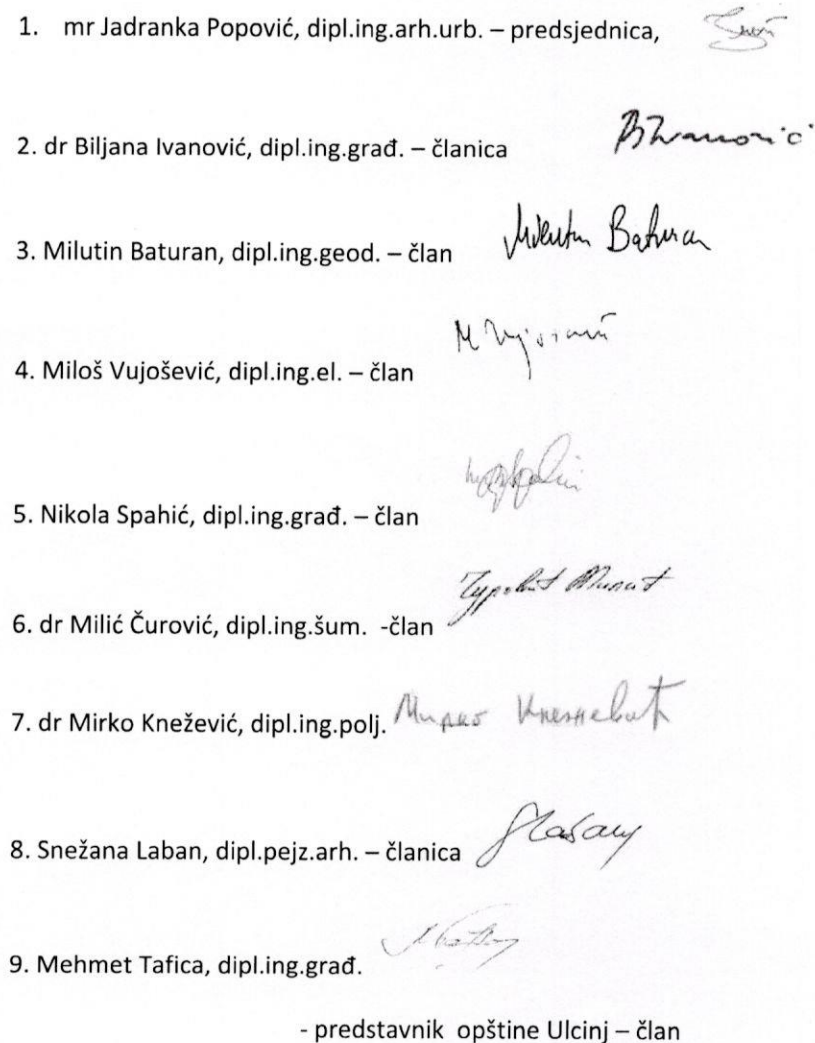 1. mr Jadranka Popović, dipl.ing.arh.urb. – predsjednica,
2. dr Biljana Ivanović, dipl.ing.građ. – članica BIvanović
3. Milutin Baturan, dipl.ing.geod. – član Milutin Baturan
4. Miloš Vujošević, dipl.ing.el. – član
5. Nikola Spahić, dipl.ing.građ. – član
6. dr Milić Čurović, dipl.ing.šum. -član
7. dr Mirko Knežević, dipl.ing.polj. Мирко Кнежевић
8. Snežana Laban, dipl.pejz.arh. – članica
9. Mehmet Tafica, dipl.ing.građ.
- predstavnik opštine Ulcinj – član